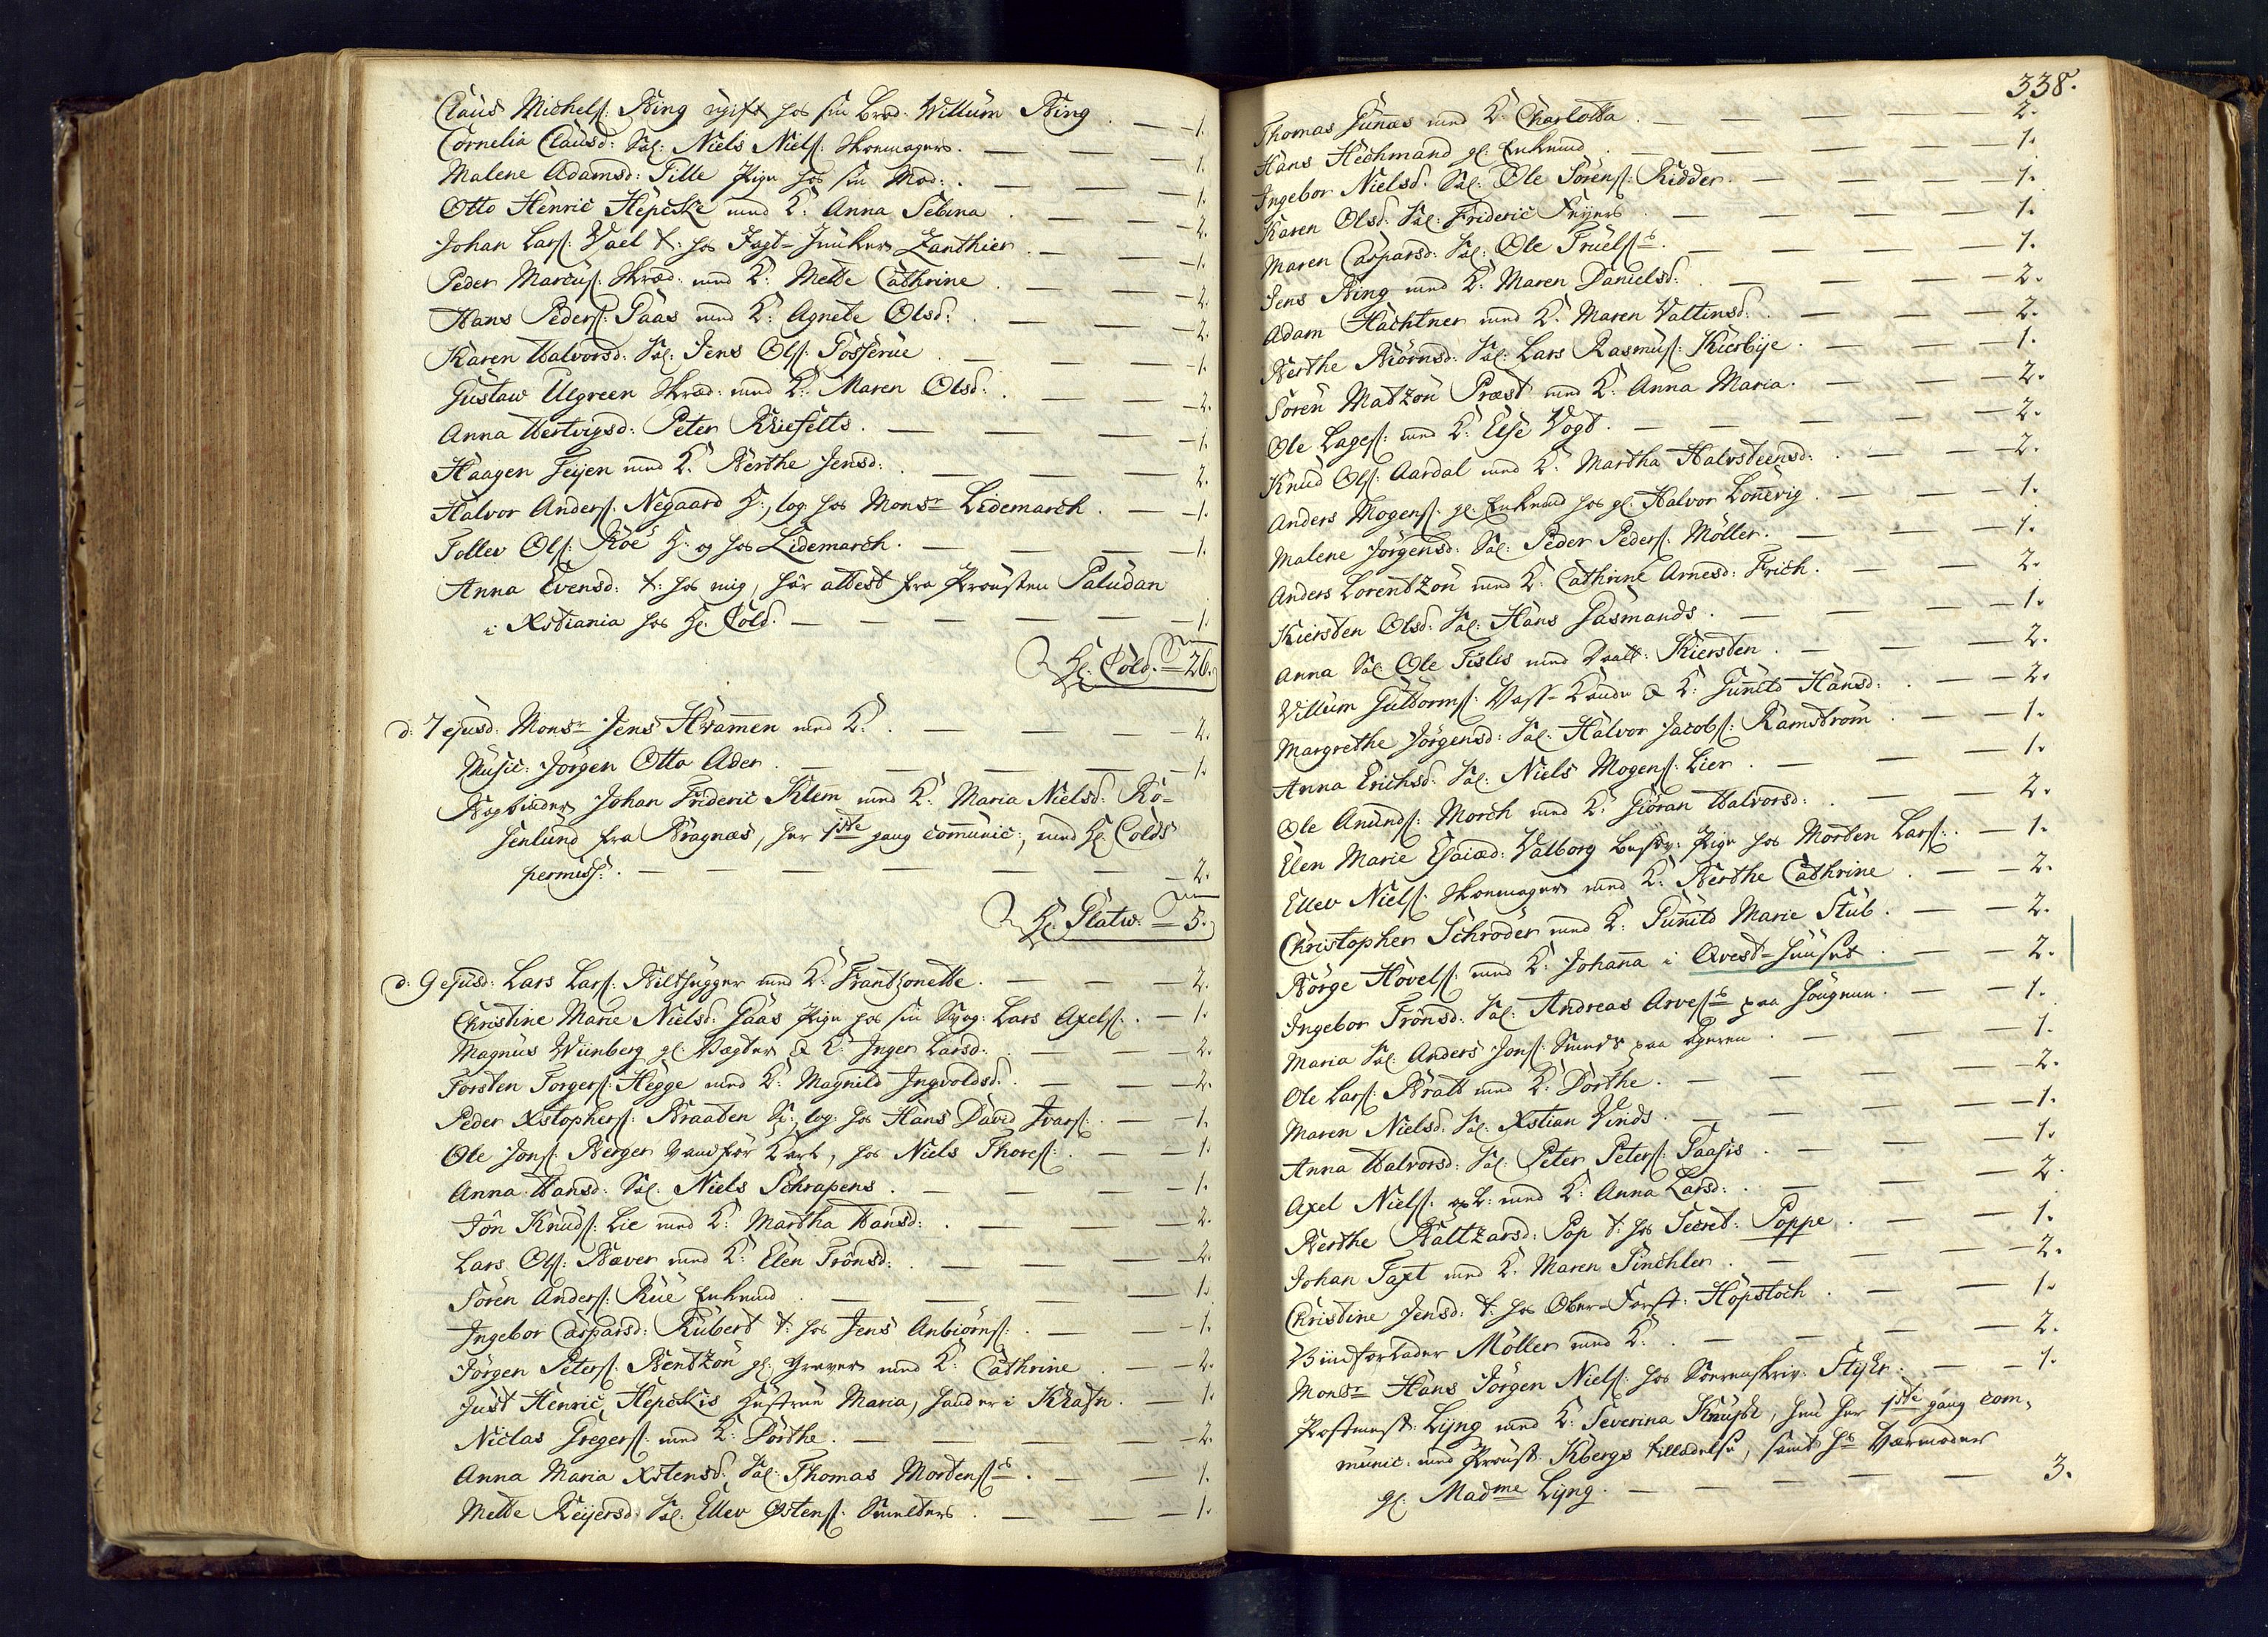 Claus Michels: Bing ugift hos sin Brod: Willum Bing . — 1.
Cornelia Clausd: Sal: Niels Niels: Skomagers. — 1.
Malene Adamsd: Tille Pige hos sin Mod: . — 1.
Otto Henric Hepcke med K: Anna Sebina . — 2.
Johan Lars: Vael t: hos Jagt-Junker Zanthier . — 1.
Peder Marcus: Skræd: med K: Mette Cathrine . — 2.
Hans Peders: Paas med K: Agnete Olsd: . — 2.
Karen Halvorsd: Sal: Jens Ols: Fosserüe . — 1.
Gustaw Ulgreen Skræd: med K: Maren Olsd: . — 2.
Anna Hertvigsd: Peter Kriesells . — 1.
Haagen Feyen med K: Berthe Jensd: . — 2.
Halvor Anders: Negaard S:, log: hos Monsr Lidemarch . — 1.
Tollev Ols: Roe S: og hos Lidemarch . — 1.
Anna Evensd: t: hos mig, har attest fra Provsten Paludan
i Xstiania hos Hr Cold. — 1.
Hr Cold. — 26.
d: 7 ejusd: Monsr Jens Hvamen med K: . — 2.
Music: Jörgen Otto Ader . — 1.
Bogbinder Johan Frideric Klem med K: Maria Nielsd: Ro-
senlund fra Bragnæs, her 1ste gang comunic:, med Hr Colds
permiss: . — 2.
Hr Platw: — 5.
d: 9 ejusd: Lars Lars: Bilthugger med K: Frantzonette . — 2.
Christine Marie Nielsd: Gaas Pige hos sin Svog: Lars Axels: . — 1.
Magnus Wiinberg gl: Vægter & K: Inger Larsd: . — 2.
Torsten Torgers: Hegge med K: Magnild Ingvoldsd: . — 2.
Peder Xstophers: Braaten S:, log: hos Hans David Ivars: . — 1.
Ole Jons: Berger Vandför Karl, hos Niels Thores: . — 1.
Anna Hansd: Sal: Niels Schrapens . — 1.
Jon Knuds: Lie med K: Martha Hansd: . — 2.
Lars Ols: Bæver med K: Elen Tronsd: . — 2.
Sören Anders: Rüe Enkemd . — 1.
Ingebor Caspersd: Rubert t: hos Jens Anbiorns: . — 1.
Jörgen Peters: Bentzon gl: Graver med K: Cathrine — 2.
Just Henric Hepckis Hustrue Maria, hand er i Khafn . — 1.
Niclas Gregers: med K: Dorthe . — 2.
Anna Maria Xstensd: Sal: Thomas Mortens:s . — 1.
Mette Reyersd: Sal: Ellev Östens: Smelters . — 1.
338.
Thomas Junas med K: Charlotta . — 2.
Hans Hechmand gl: Enkemd . — 1.
Ingebor Nielsd: Sal: Ole Sörens: Ridder . — 1.
Karen Olsd: Sal: Frideric Feyers . — 1.
Maren Caspersd: Sal: Ole Truels:s . — 1.
Jens Bing med K: Maren Danielsd: . — 2.
Adam Hachtner med K: Maren Valtinsd: . — 2.
Berthe Biörnsd: Sal: Lars Rasmus: Kierbye . — 1.
Sören Matzon Præst med K: Anna Maria . — 2.
Ole Lages: med K: Else Vogt . — 2.
Knud Ols: Aardal med K: Martha Halvsteensd: . — 2.
Anders Mogens: gl: Enkemd hos gl: Halvor Lonevig . — 1.
Malene Jörgensd: Sal: Peder Peders: Möller . — 1.
Anders Lorentzon med K: Cathrine Arnesd: Frich . — 2.
Kiersten Olsd: Sal: Hans Gasmands . — 1.
Anna Sal: Ole Fislis med Daatt: Kiersten . — 2.
Villum Guldorms: Vass-Kaude & K: Gunild Hansd: . — 2.
Margrethe Jörgensd: Sal: Halvor Jacobs: Ramstrom . — 1.
Anna Erichsd: Sal: Niels Mogens: Lier . — 1.
Ole Anunds: Morch med K: Göran Halvorsd: . — 2.
Elen Marie Esaiæd: Valborg besov: Pige hos Morten Lars: . — 1.
Ellev Niels: Skomager med K: Berthe Cathrine . — 2.
Christopher Schroder med K: Gunild Marie Stub . — 2.
Börge Hovels: med K: Johana i Qvest-Huuset . — 2.
Ingebor Tronsd: Sal: Andreas Arves:s paa Hougene . — 1.
Maria Sal: Anders Jons: Smeds paa Ageren . — 1.
Ole Lars: Bratt med K: Dorthe . — 2.
Maren Nielsd: Sal: Xstian Vinds . — 1.
Anna Halvorsd: Sal: Peter Peters: Paasis . — 1.
Axel Niels: med K: Anna Larsd: . — 2.
Berthe Baltzarsd: Pop t: hos Secret: Poppe . — 1.
Johan Taxt med K: Maren Pinchler . — 2.
Christine Jensd: t: hos Ober-Forst: Hopstoch . — 1.
Vinforlader Möller med K: . — 2.
Monsr Hans Jörgen Niels: hos Sorenskriv: Styhr . — 1.
Postmest: Lyng med K: Severina Knudsd, hun her 1ste gang com-
munic: med Provst Kbergs tilladelse, samt hs Værmoder
gl: Madme Lyng . — 3.